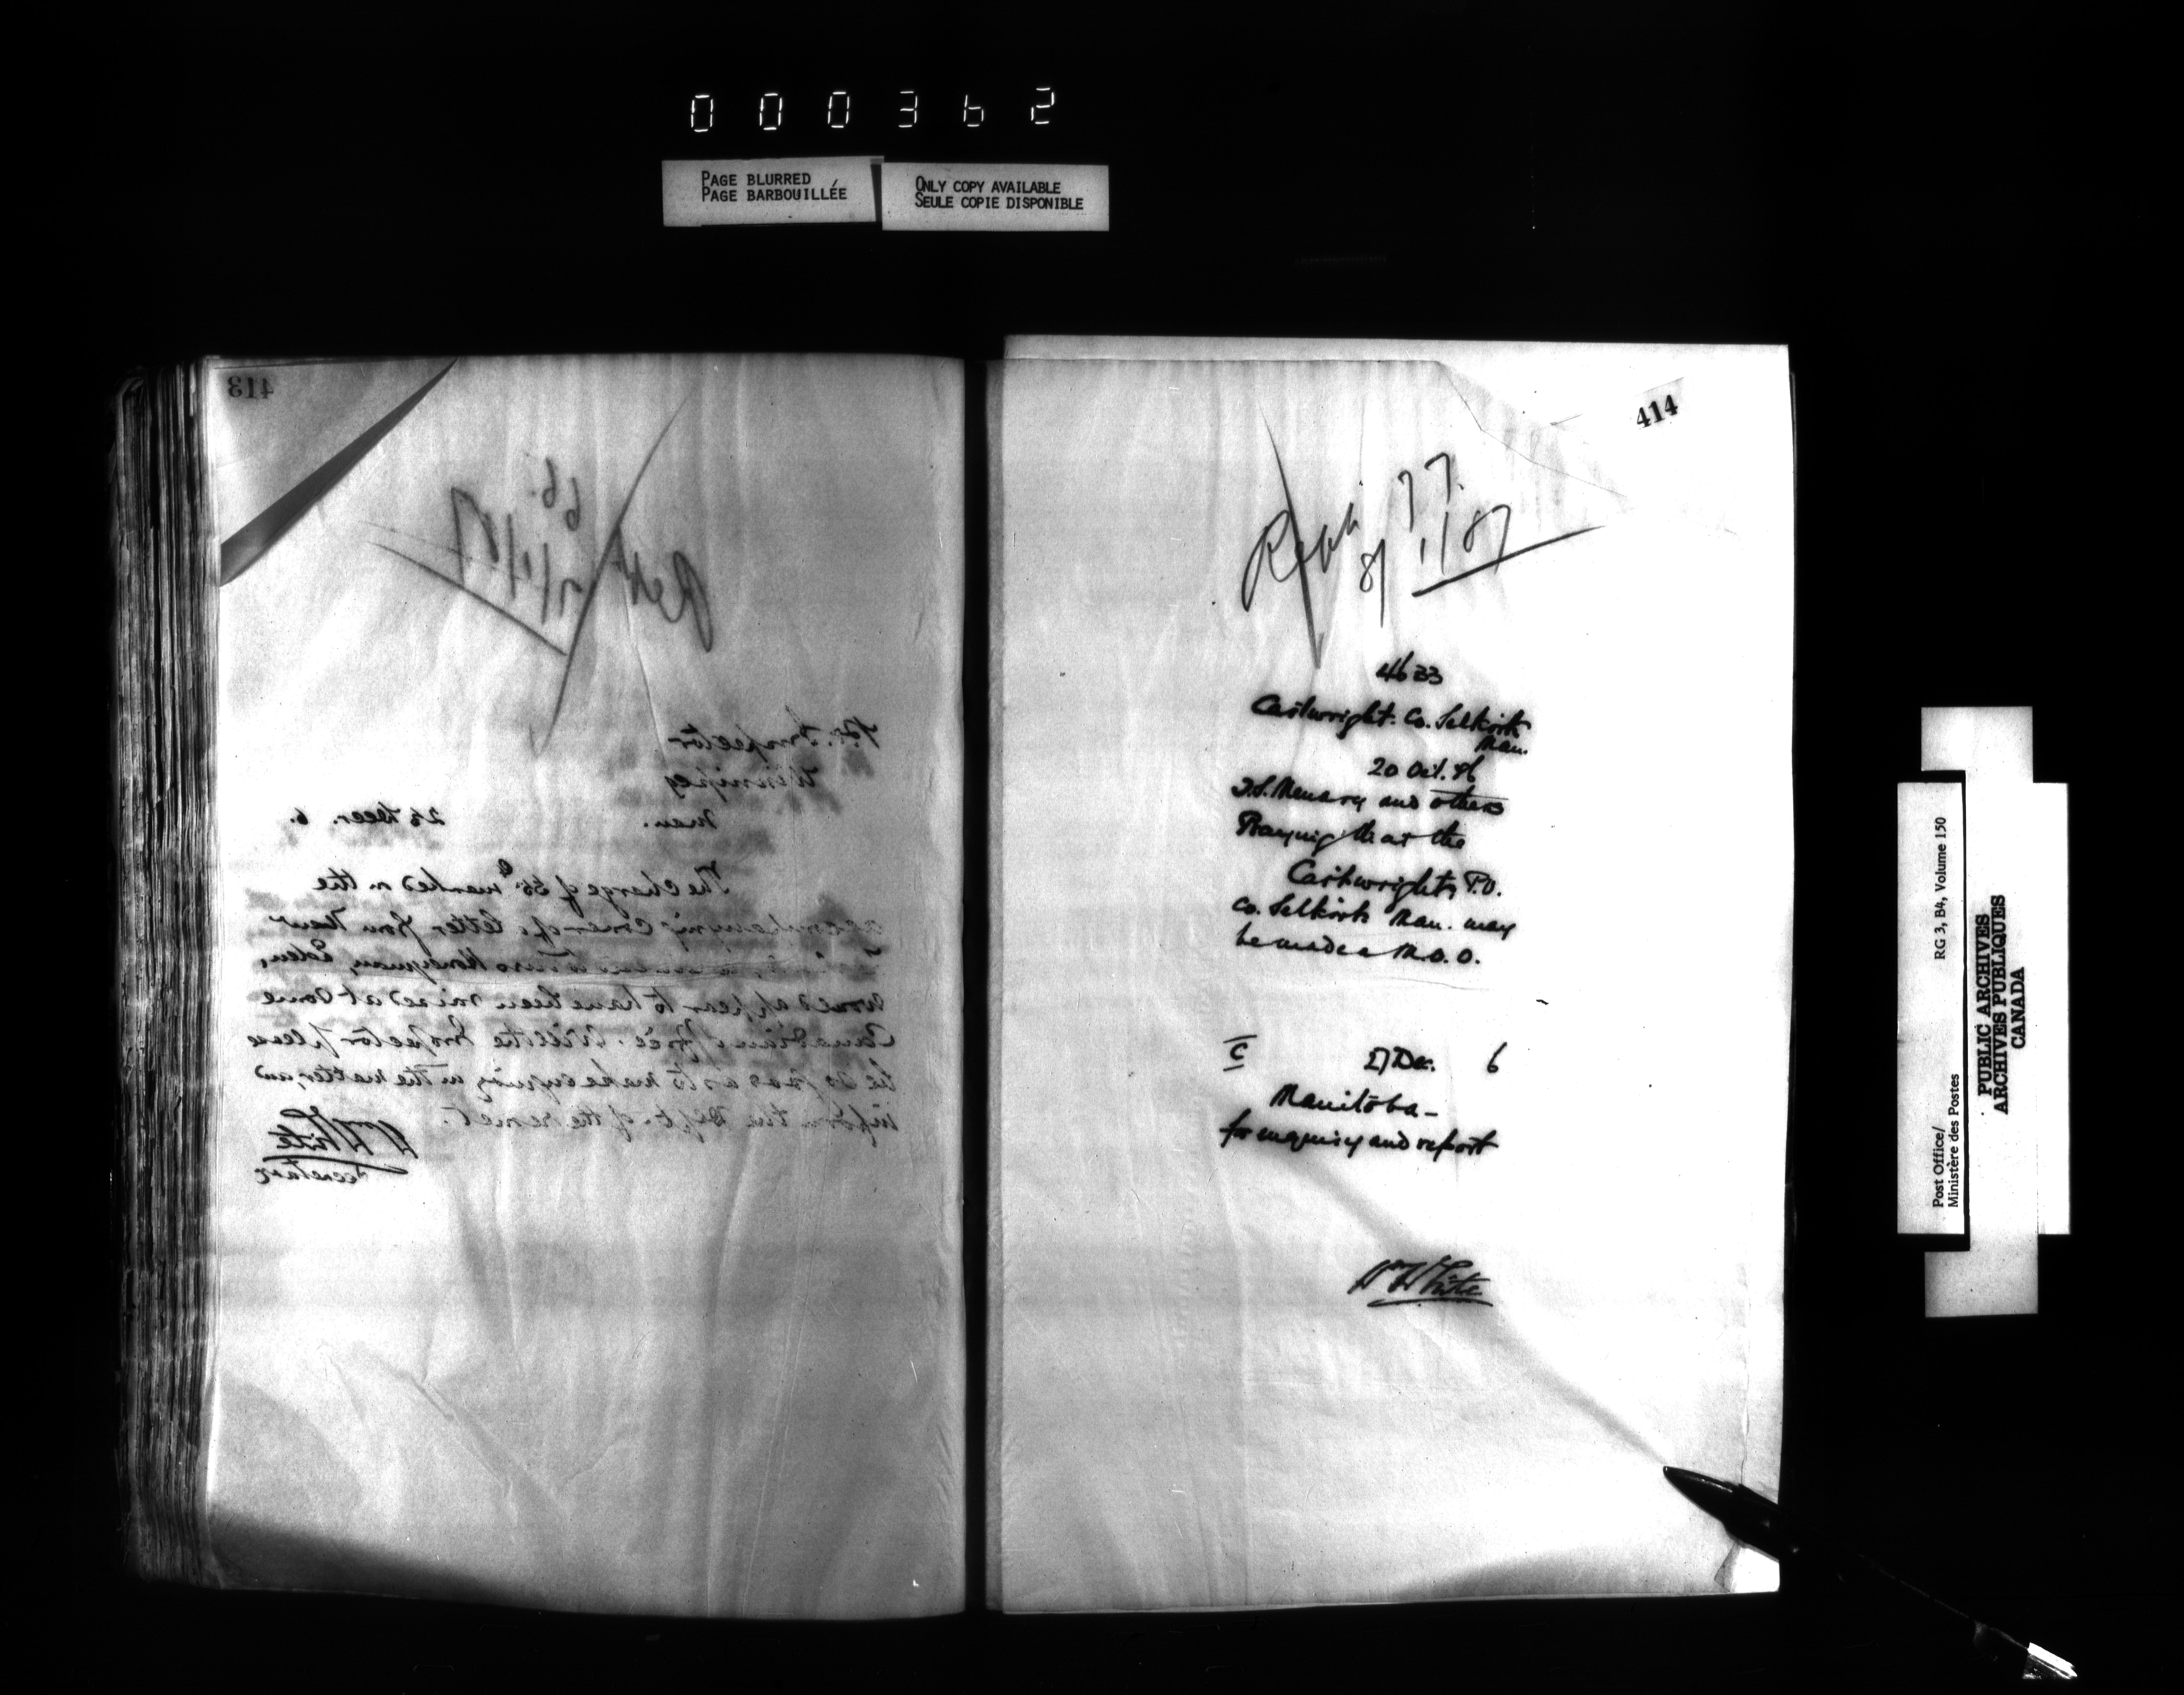 000362
PAGE BLURRED
PAGE BARBOUILLÉE
ONLY COPY AVAILABLE
SEULE COPIE DISPONIBLE
413
P.O. Inspector
Winnipeg
Man. 25 Decr. 6.
The charge of marked on the
accompanying cover of a letter from New
Honeyman, Eden,
would appear to have been raised at some
Canadian Office. Will the Inspector please
be so good as to make inquiry in the matter, and
inform the Dept. of the result.
Wm White
Secretary
414
77.
8/1/87
4633
Cartwright. Co. Selkirk
Man.
20 Oct. 86
Menary and others
Praying that the
Cartwright P.O.
Co. Selkirk Man. may
be made a M.O.O.
C 27 Dec. 6
Manitoba-
for inquiry and report
Wm White
Post Office/
Ministère des Postes
RG 3, B4, Volume 150
PUBLIC ARCHIVES
ARCHIVES PUBLIQUES
CANADA